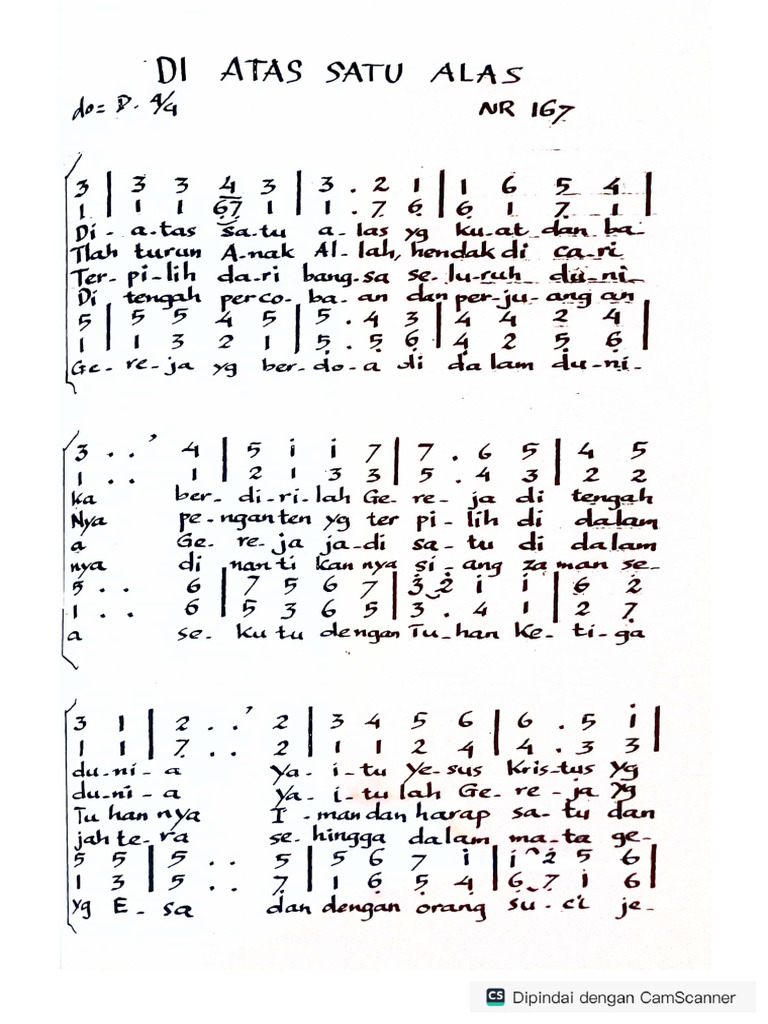 DI ATAS SATU ALAS
do = D. 4/4 NR 167
3 | 3 3 4 3 | 3 . 2 1 | 1 6 5 4 |
1 | 1 1 6̣7̣ 1 | 1 . 7̣ 6̣ | 6̣ 1 7̣ 1 |
Di - a-tas sa-tu a-las yg ku-at dan ba-
Tlah turun A-nak Al-lah, hendak di ca-ri
Ter-pi-lih da-ri bang-sa se-lu-ruh du-ni-
Di tengah perco-ba-an dan per-ju-ang an
5 | 5 5 4 5 | 5 . 4 3 | 4 4 2 4 |
1 | 1 3 2 1 | 5̣ . 5̣ 6̣ | 4̣ 2 5̣ 6̣ |
Ge-re-ja yg ber-do-a di dalam du-ni-
3 . . ’ 4 | 5 i i 7 | 7 . 6 5 | 4 5
1 . . 1 | 2 1 3 3 | 5 . 4 3 | 2 2
ka ber-di-ri-lah Ge-re-ja di tengah
Nya pe-nganten yg ter pi-lih di dalam
a Ge-re-ja ja-di sa-tu di dalam
nya di nanti kan nya si-ang zaman se-
5 . . 6 | 7 5 6 7 | 3̇ 2̇ i i | 6 2̇
1 . . 6 | 5 3 6 5 | 3 . 4 1 | 2 7̣
a se-ku tu dengan Tu-han Ke-ti-ga
3 1 | 2 . . ’ 2 | 3 4 5 6 | 6 . 5 i |
1 1 | 7̣ . . 2 | 1 1 2 4 | 4 . 3 3 |
du-ni-a Ya-i-tu Ye-sus Kris-tus yg
du-ni-a Ya-i-tu lah Ge-re-ja Yg
Tu han nya I-man dan harap sa-tu dan
jah te-ra se-hingga dalam ma-ta ge-
5 5 | 5 . . 5 | 5 6 7 i | i 2̇ 5 6 |
1 3 | 5 . . 7̣ | 1 6̣ 5̣ 4̣ | 6̣ 7̣ i 6 |
yg E-sa dan dengan orang su-ci je-
CS Dipindai dengan CamScanner